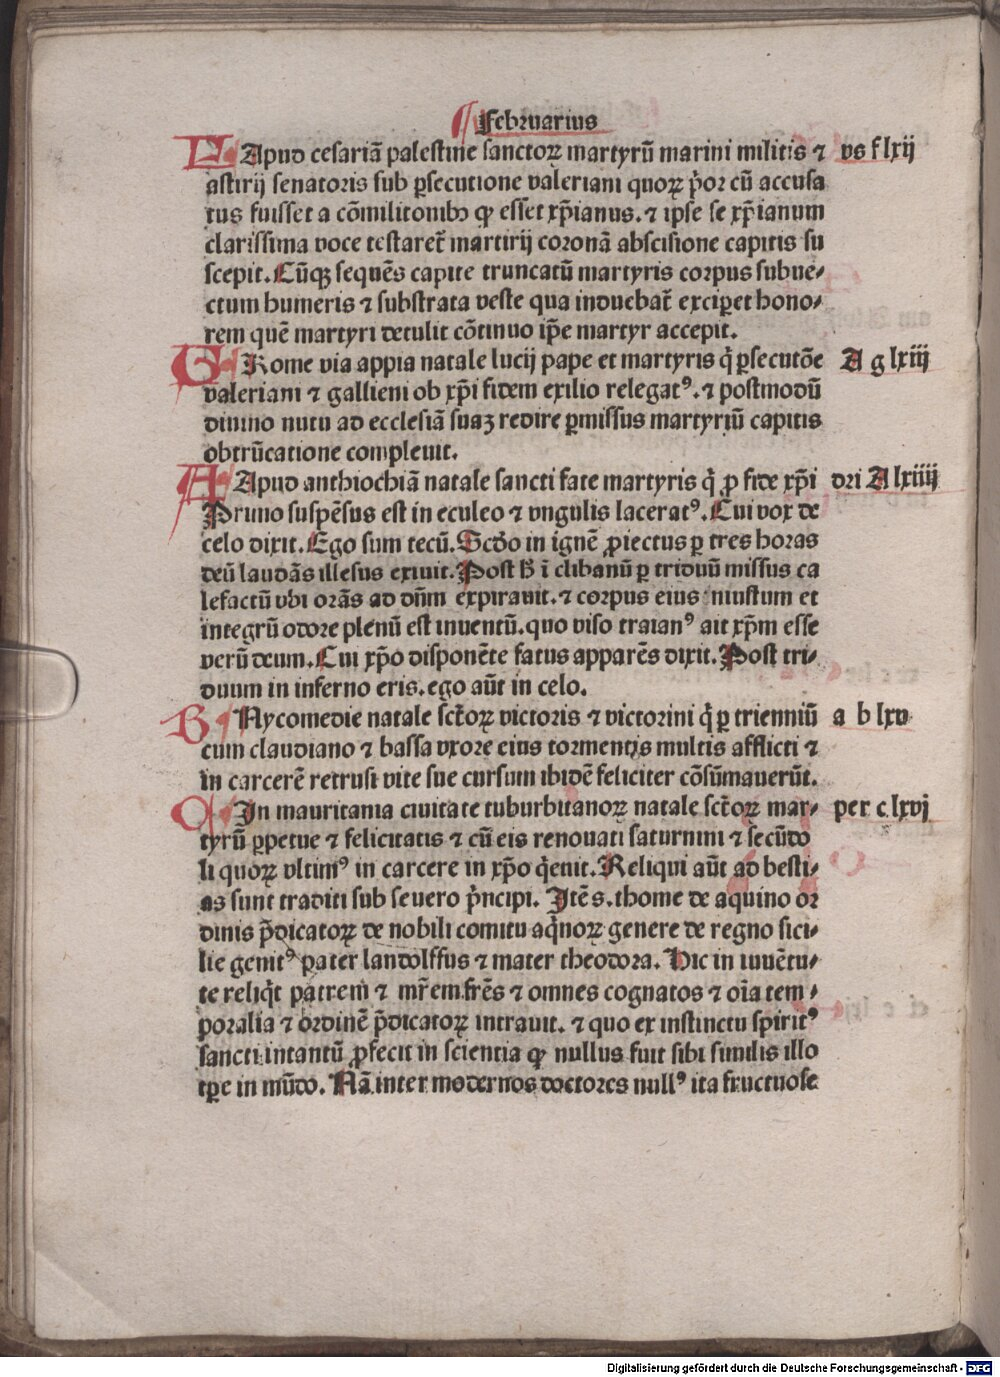 Februarius
F Apud cesariā palestine sanctoꝝ martyrū marini militis ⁊ vs f lxij
astirij senatoris sub ꝑsecutione valeriani quoꝝ p̄or cū accusa
tus fuisset a cōmilitonibꝫ ꝙ esset xp̄ianus. ⁊ ipse se xp̄ianum
clarissima voce testaret᷑ martirij coronā abscisione capitis su
scepit. Cūqꝫ sequēs capite truncatū martyris corpus subue⸗
ctum humeris ⁊ substrata veste qua induebat᷑ exciꝑet hono⸗
rem quē martyri detulit cōtinuo ip̄e martyr accepit.
G Rome via appia natale lucij pape et martyris q̇ ꝑsecutōe A g lxiij
valeriani ⁊ gallieni ob xp̄i fidem exilio relegatꝰ. ⁊ postmodū
diuino nutu ad ecclesiā suaꝫ redire ꝑmissus martyriū capitis
obtrūcatione compleuit.
A Apud anthiochiā natale sancti fate martyris q̇ ꝓ fide xp̄i dri A lxiiij
Pruno suspēsus est in eculeo ⁊ vngulis laceratꝰ. Cui vox de
celo dixit. Ego sum tecū. Scd̄o in ignē ꝓiectus ꝑ tres horas
deū laudās illesus exiuit. Post h̄ ī clibanū ꝑ triduū missus ca
lefactū vbi orās ad dn̄m expirauit. ⁊ corpus eius niustum et
integrū odore plenū est inuentū. quo viso traianꝰ ait xp̄m esse
verū deum. Cui xp̄o disponēte fatus apparēs dixit. Post tri⸗
duum in inferno eris. ego aūt in celo.
B Nycomedie natale sct̄oꝝ victoris ⁊ victorini q̇ ꝑ trienniū a b lxv
cum claudiano ⁊ bassa vxore eius tormentis multis afflicti ⁊
in carcerē retrusi vite sue cursum ibidē feliciter cōsūmauerūt.
C In mauritania ciuitate tuburbitanoꝝ natale sct̄oꝝ mar⸗ per c lxvj
tyrū ꝑpetue ⁊ felicitatis ⁊ cū eis renouati saturnini ⁊ secūdo
li quoꝝ vltimꝰ in carcere in xp̄o q̇euit. Reliqui aūt ad besti⸗
as sunt traditi sub seuero p̄ncipi. Itē s. thome de aquino or
dinis p̄dicatoꝝ de nobili comitu aq̇noꝝ genere de regno sici⸗
lie genitꝰ pater landolffus ⁊ mater theodora. Hic in iuuētu⸗
te reliq̇t patrem ⁊ mr̄em frēs ⁊ omnes cognatos ⁊ oīa tem⸗
poralia ⁊ ordinē p̄dicatoꝝ intrauit. ⁊ quo ex instinctu spiritꝰ
sancti intantū ꝓfecit in scientia ꝙ nullus fuit sibi similis illo
tꝑe in mūdo. Nā inter modernos doctores nullꝰ ita fructuose
Digitalisierung gefördert durch die Deutsche Forschungsgemeinschaft - DFG